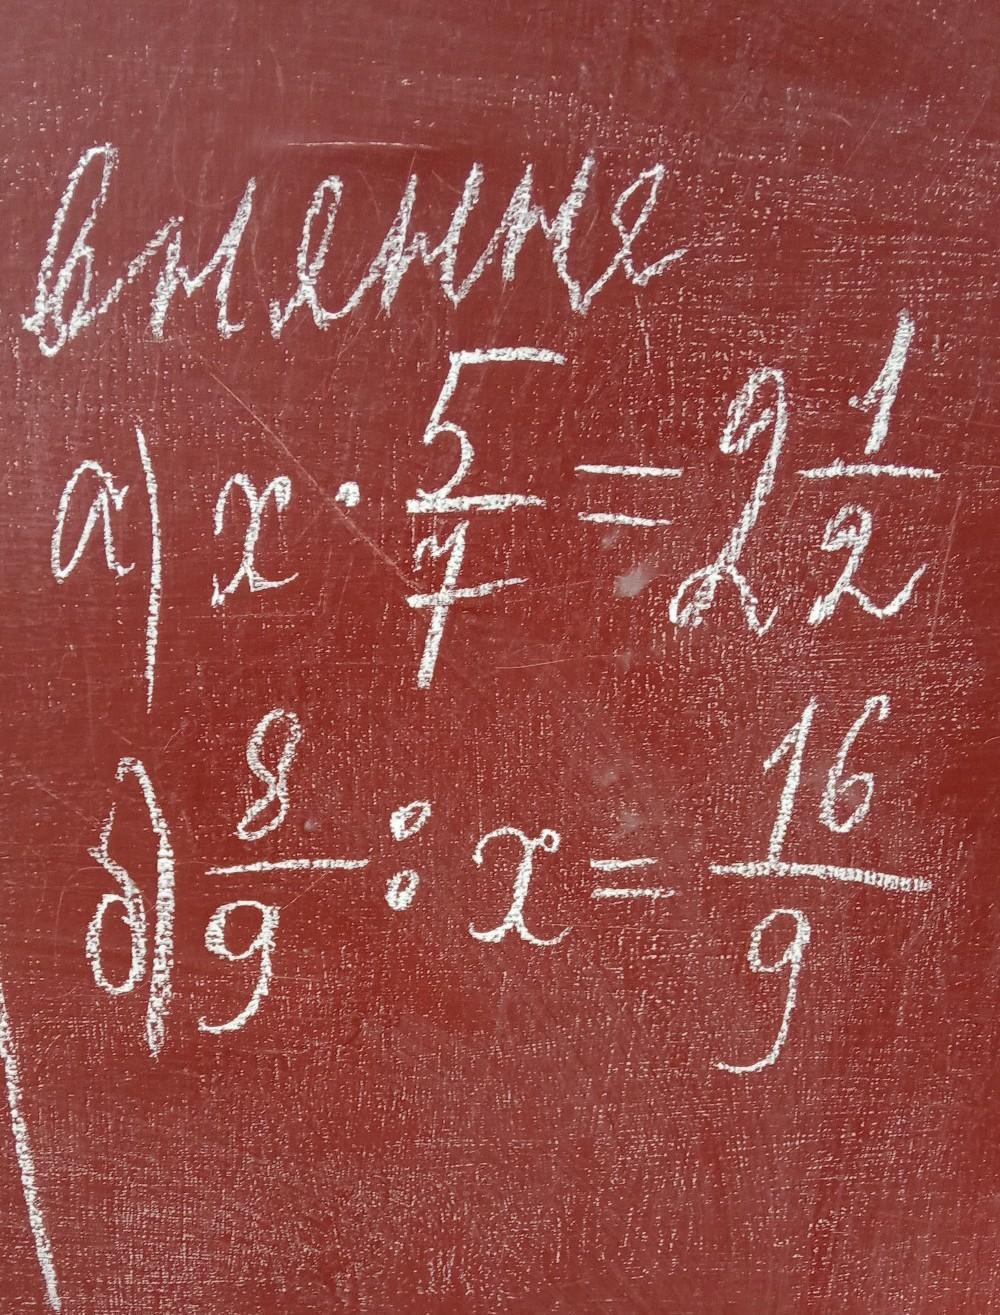 внение
а) x · 5/7 = 2 1/2
б) 8/9 : x = 16/9